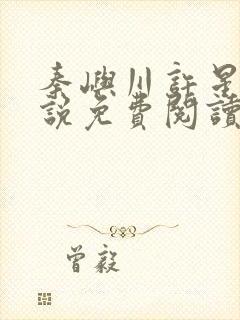 秦嶼川許是
說免費閱讀
曾毅